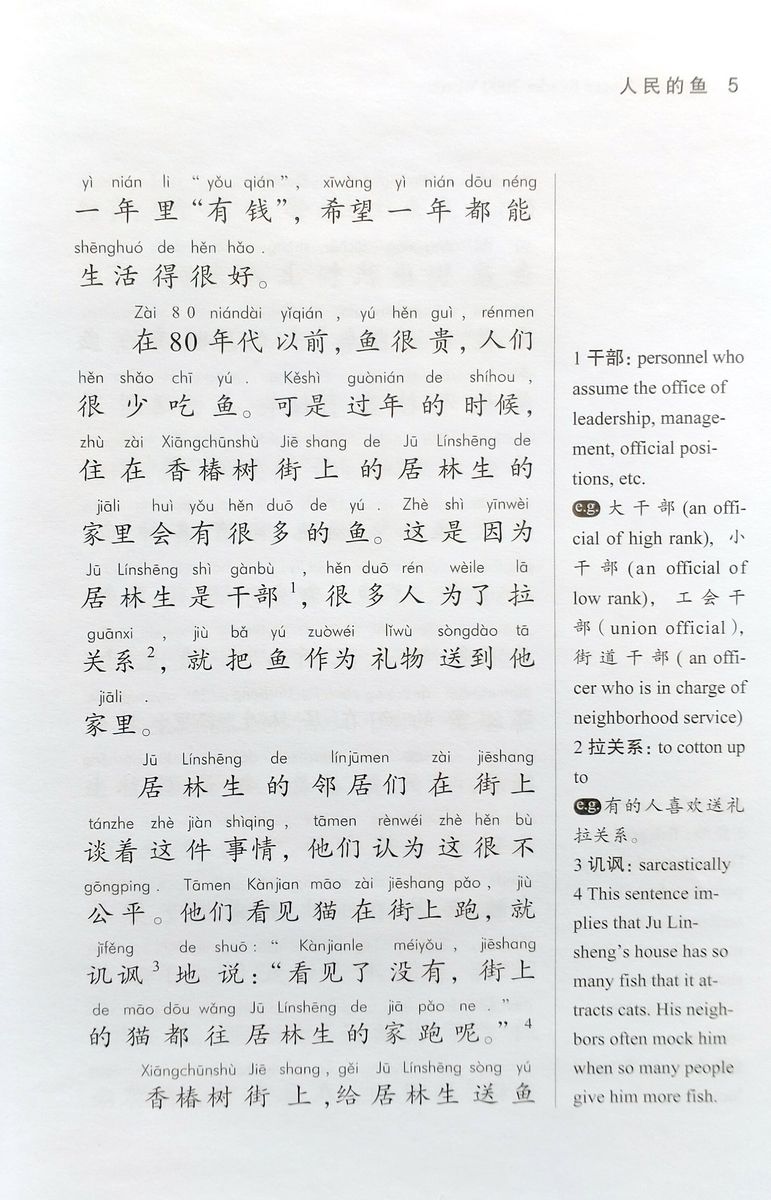 人民的鱼 5
yì nián lì “yǒu qián”, xīwàng yì nián dōu néng
一年里“有钱”,希望一年都能
shēnghuó de hěn hǎo.
生活得很好。
Zài 80 niándài yǐqián, yú hěn guì, rénmen
在80年代以前,鱼很贵,人们
hěn shǎo chī yú. Kěshì guònián de shíhou,
很少吃鱼。可是过年的时候,
zhù zài Xiāngchūnshù Jiē shang de Jū Línshēng de
住在香椿树街上的居林生的
jiāli huì yǒu hěn duō de yú. Zhè shì yīnwèi
家里会有很多的鱼。这是因为
Jū Línshēng shì gànbù, hěn duō rén wèile lā
居林生是干部1,很多人为了拉
guānxi, jiù bǎ yú zuòwéi lǐwù sòngdào tā
关系2,就把鱼作为礼物送到他
jiāli.
家里。
Jū Línshēng de línjūmen zài jiēshang
居林生的邻居们在街上
tánzhe zhè jiàn shìqing, tāmen rènwéi zhè hěn bù
谈着这件事情,他们认为这很不
gōngping. Tāmen Kànjian māo zài jiēshang pǎo, jiù
公平。他们看见猫在街上跑,就
jīfěng de shuō: “Kànjianle méiyǒu, jiēshang
讥讽3地说:“看见了没有,街上
de māo dōu wǎng Jū Línshēng de jiā pǎo ne.”
的猫都往居林生的家跑呢。”4
Xiāngchūnshù Jiē shang, gěi Jū Línshēng sòng yú
香椿树街上,给居林生送鱼
1 干部: personnel who
assume the office of
leadership, manage-
ment, official posi-
tions, etc.
e.g. 大干部 (an offi-
cial of high rank), 小
干部 (an official of
low rank), 工会干
部 (union official),
街道干部 (an offi-
cer who is in charge of
neighborhood service)
2 拉关系: to cotton up
to
e.g. 有的人喜欢送礼
拉关系。
3 讥讽: sarcastically
4 This sentence im-
plies that Ju Lin-
sheng's house has so
many fish that it at-
tracts cats. His neigh-
bors often mock him
when so many people
give him more fish.